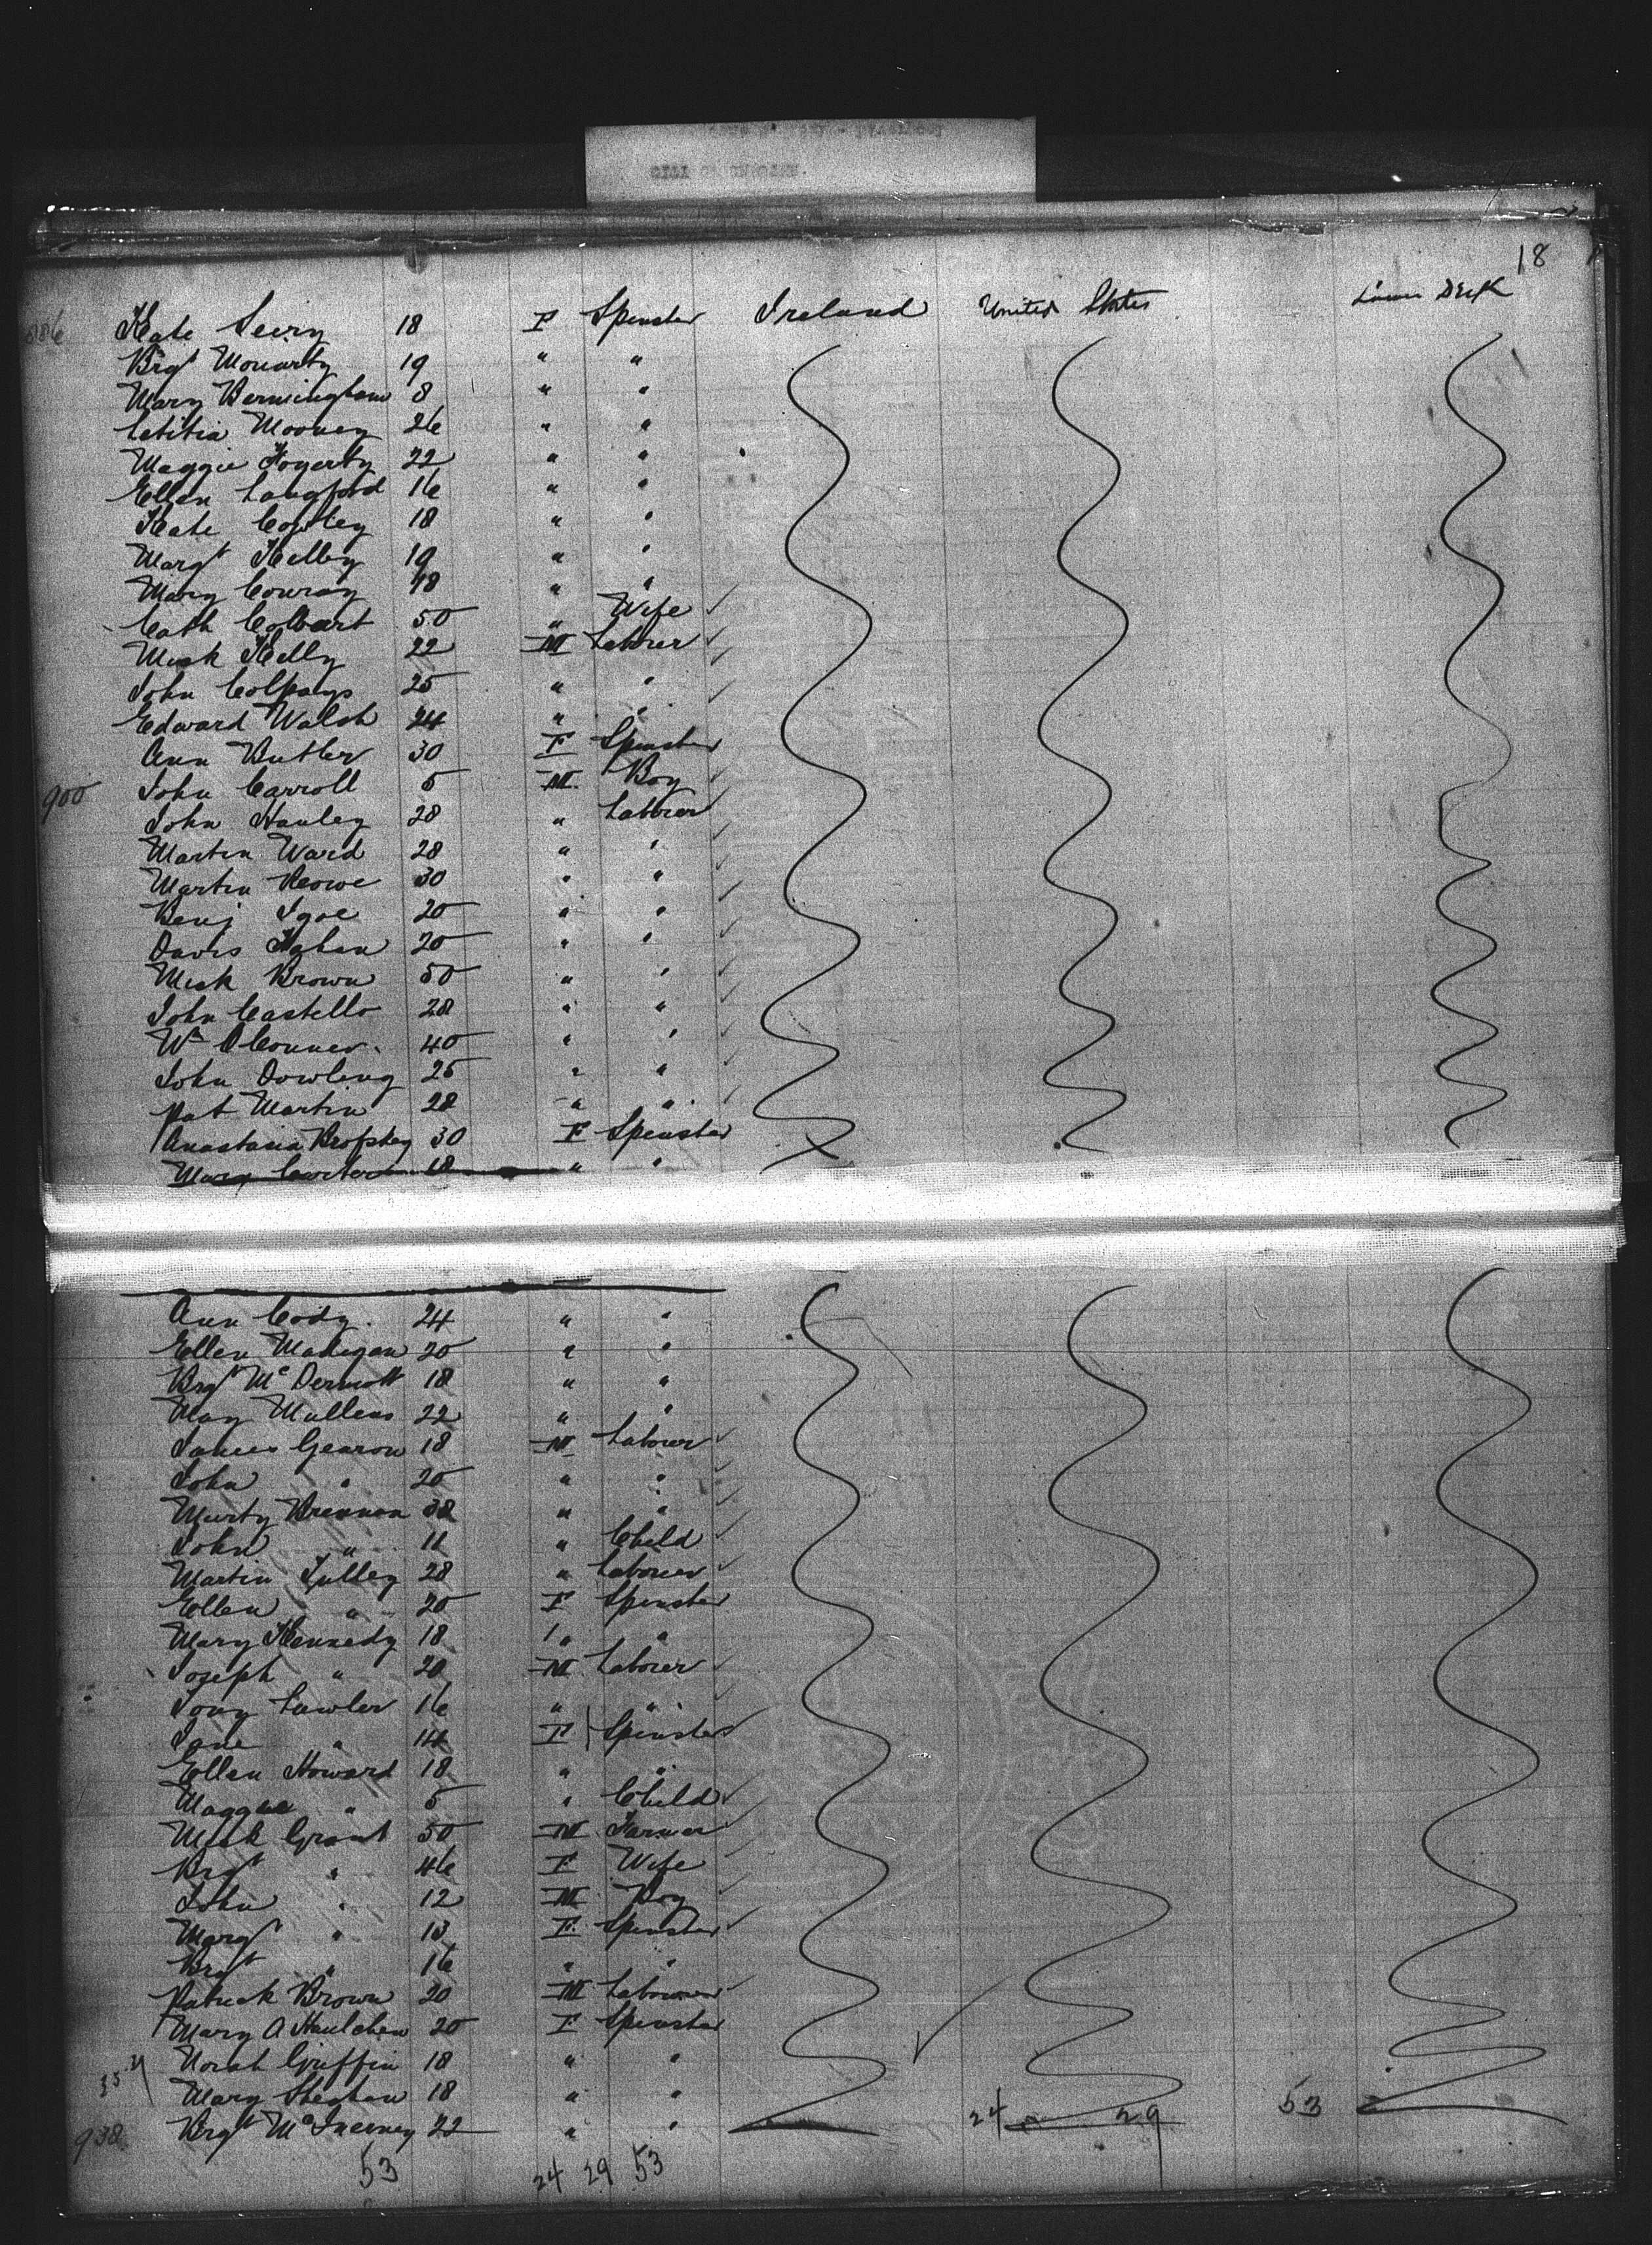 18
886 Kate Leery 18 F Spenster Ireland United States Lower Deck
Brgt Moriarty 19 " "
Mary Bermingham 8 " "
Letitia Mooney 26 " "
Maggie Fogerty 22 " "
Ellen Langford 16 " "
Kate Cowley 18 " "
Margt Kelley 19 " "
Mary Conray 18 " "
Cath Colbert 50 " Wife
Mick Kelly 22 M Laborer
John Colpays 25 " "
Edward Walsh 24 " "
Ann Butler 30 F Spenster
900 John Carroll 5 M Boy
John Hanley 28 " Laborer
Martin Ward 28 " "
Martin Rowe 30 " "
Benj Igoe 20 " "
Davis 20 " "
Mick Brown 50 " "
John Castello 28 " "
Wm OConner 40 " "
John Dowling 25 " "
Pat Martin 28 " "
Anastasia Brophey 30 F Spenster
Mary Carter 18 " "
Ann Cody. 24 " "
Ellen Madigan 20 " "
Brgt McDermott 18 " "
May Mullens 22 " "
James Gearon 18 M Laborer
John " 20 " "
Murty Brennan 38 " "
John " 11 " Child
Martin Tulley 28 " Laborer
Ellen " 20 F Spenster
Mary Kennedy 18 " "
Joseph " 20 M Laborer
Tony Lawler 16 " "
Jane " 14 F Spenster
Ellen Howard 18 " "
Maggie " 5 " Child
Mick Grant 50 M Farmer
Brgt " 46 F Wife
John " 12 M Boy
Margt " 13 F Spenster
Brgt " 16 " "
Patrick Brown 20 M Labourer
Mary A 20 F Spenster
Norah Griffin 18 " "
Mary Sheehan 18 " " 24 29 53
938 Brgt McInerney 22 " "
53 24 29 53